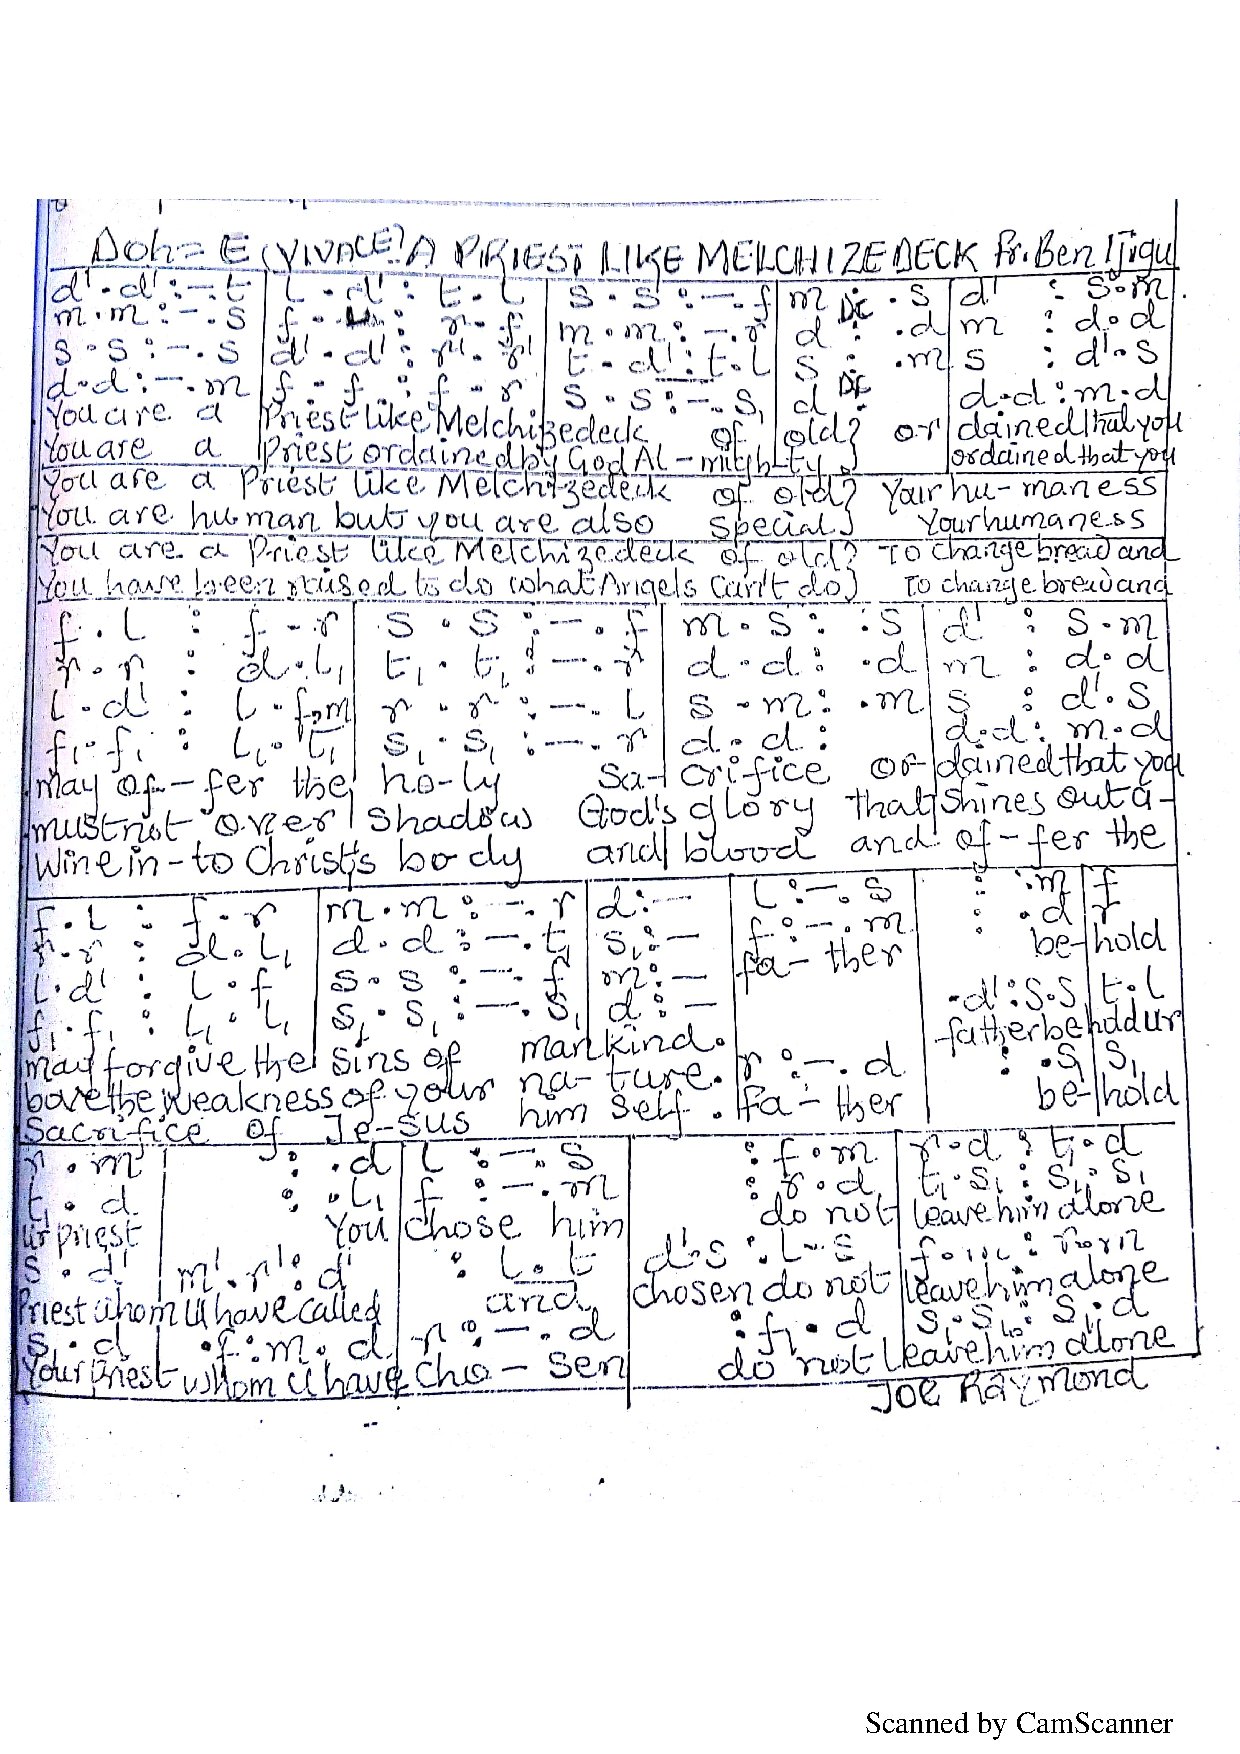 Doh = E (VIVACE) A PRIEST LIKE MELCHIZEDECK Fr. Ben Ijigu
d' . d' : – . t | l . d' : t . l | s . s : – . f | m DC : . s | d' : s . m
m . m : – . s | f . : r . f | m . m : – . r | d : . d | m : d . d
s . s : – . s | d' . d' : r' . r' | t . d' : t . l | s : . m | s : d' . s
d . d : – . m | f . f : f . r | s . s : – . s, | d DC | d . d : m . d
You are a Priest like Melchizedeck of old} or dained that you
You are a Priest ordained by God Al – migh – ty } ordained that you
You are a Priest like Melchizedeck of old} Your hu – maness
You are human but you are also special } Your humaness
You are a Priest like Melchizedeck of old? To change bread and
You have been raised to do what Angels Can't do} To change bread and
f . l : f – r | s . s : – . f | m . s : . s | d' : s . m
r . r : d . l, | t, . t, : – . r | d . d : . d | m : d . d
l . d' : l . f,m | r . r : – . l | s . m : . m | s : d' . s
f, . f, : l, . t, | s, . s, : – . r | d . d : | d . d : m . d
may of – fer the ho – ly Sa – crifice or – dained that you
must not over shadow God's glory that shines out a –
Wine in – to Christ's body and blood and of – fer the
f . l : f . r | m . m : – . r | d : – | l : – . s | : . m | f
r . r : d . l, | d . d : – . t, | s, : – | f : – . m | : . d | r
fa – ther be – hold
l . d' : l . f | s . s : – . f | m : – | . d' : s . s | t . l
f, . f, : l, . l, | s, . s, : – . s, | d : –
father behold ur
may forgive the sins of mankind. r : – . d | : . s, | s,
bove the weakness of your na – ture. Fa – ther be – hold
Sacrifice of Je – sus him self.
r . m | : . d | l : – . s | : f . m | r . d : t, . d
t, . d | : . l, | f : – . m | : r . d | t, . s, : s, . s,
ur priest You chose him do not leave him alone
s . d' | m' . r' : d' | : l . t | d' . s : l – s
Priest whom U have called and chosen do not leave him alone
s . d | . f : m . d | r : – . d | : f, . d | s, . s, : s, . d
Your Priest whom U have cho – sen do not leave him alone
JOE RAYMOND
Scanned by CamScanner